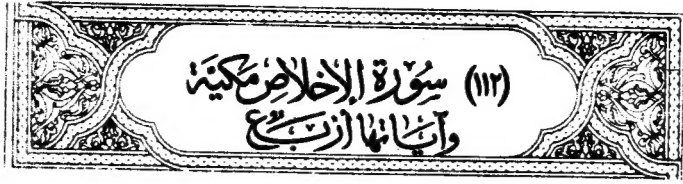 (١١٢) سُورَة الإِخْلَاصِ مَكيَّة
وَآيَاتُهَا أَرْبَع